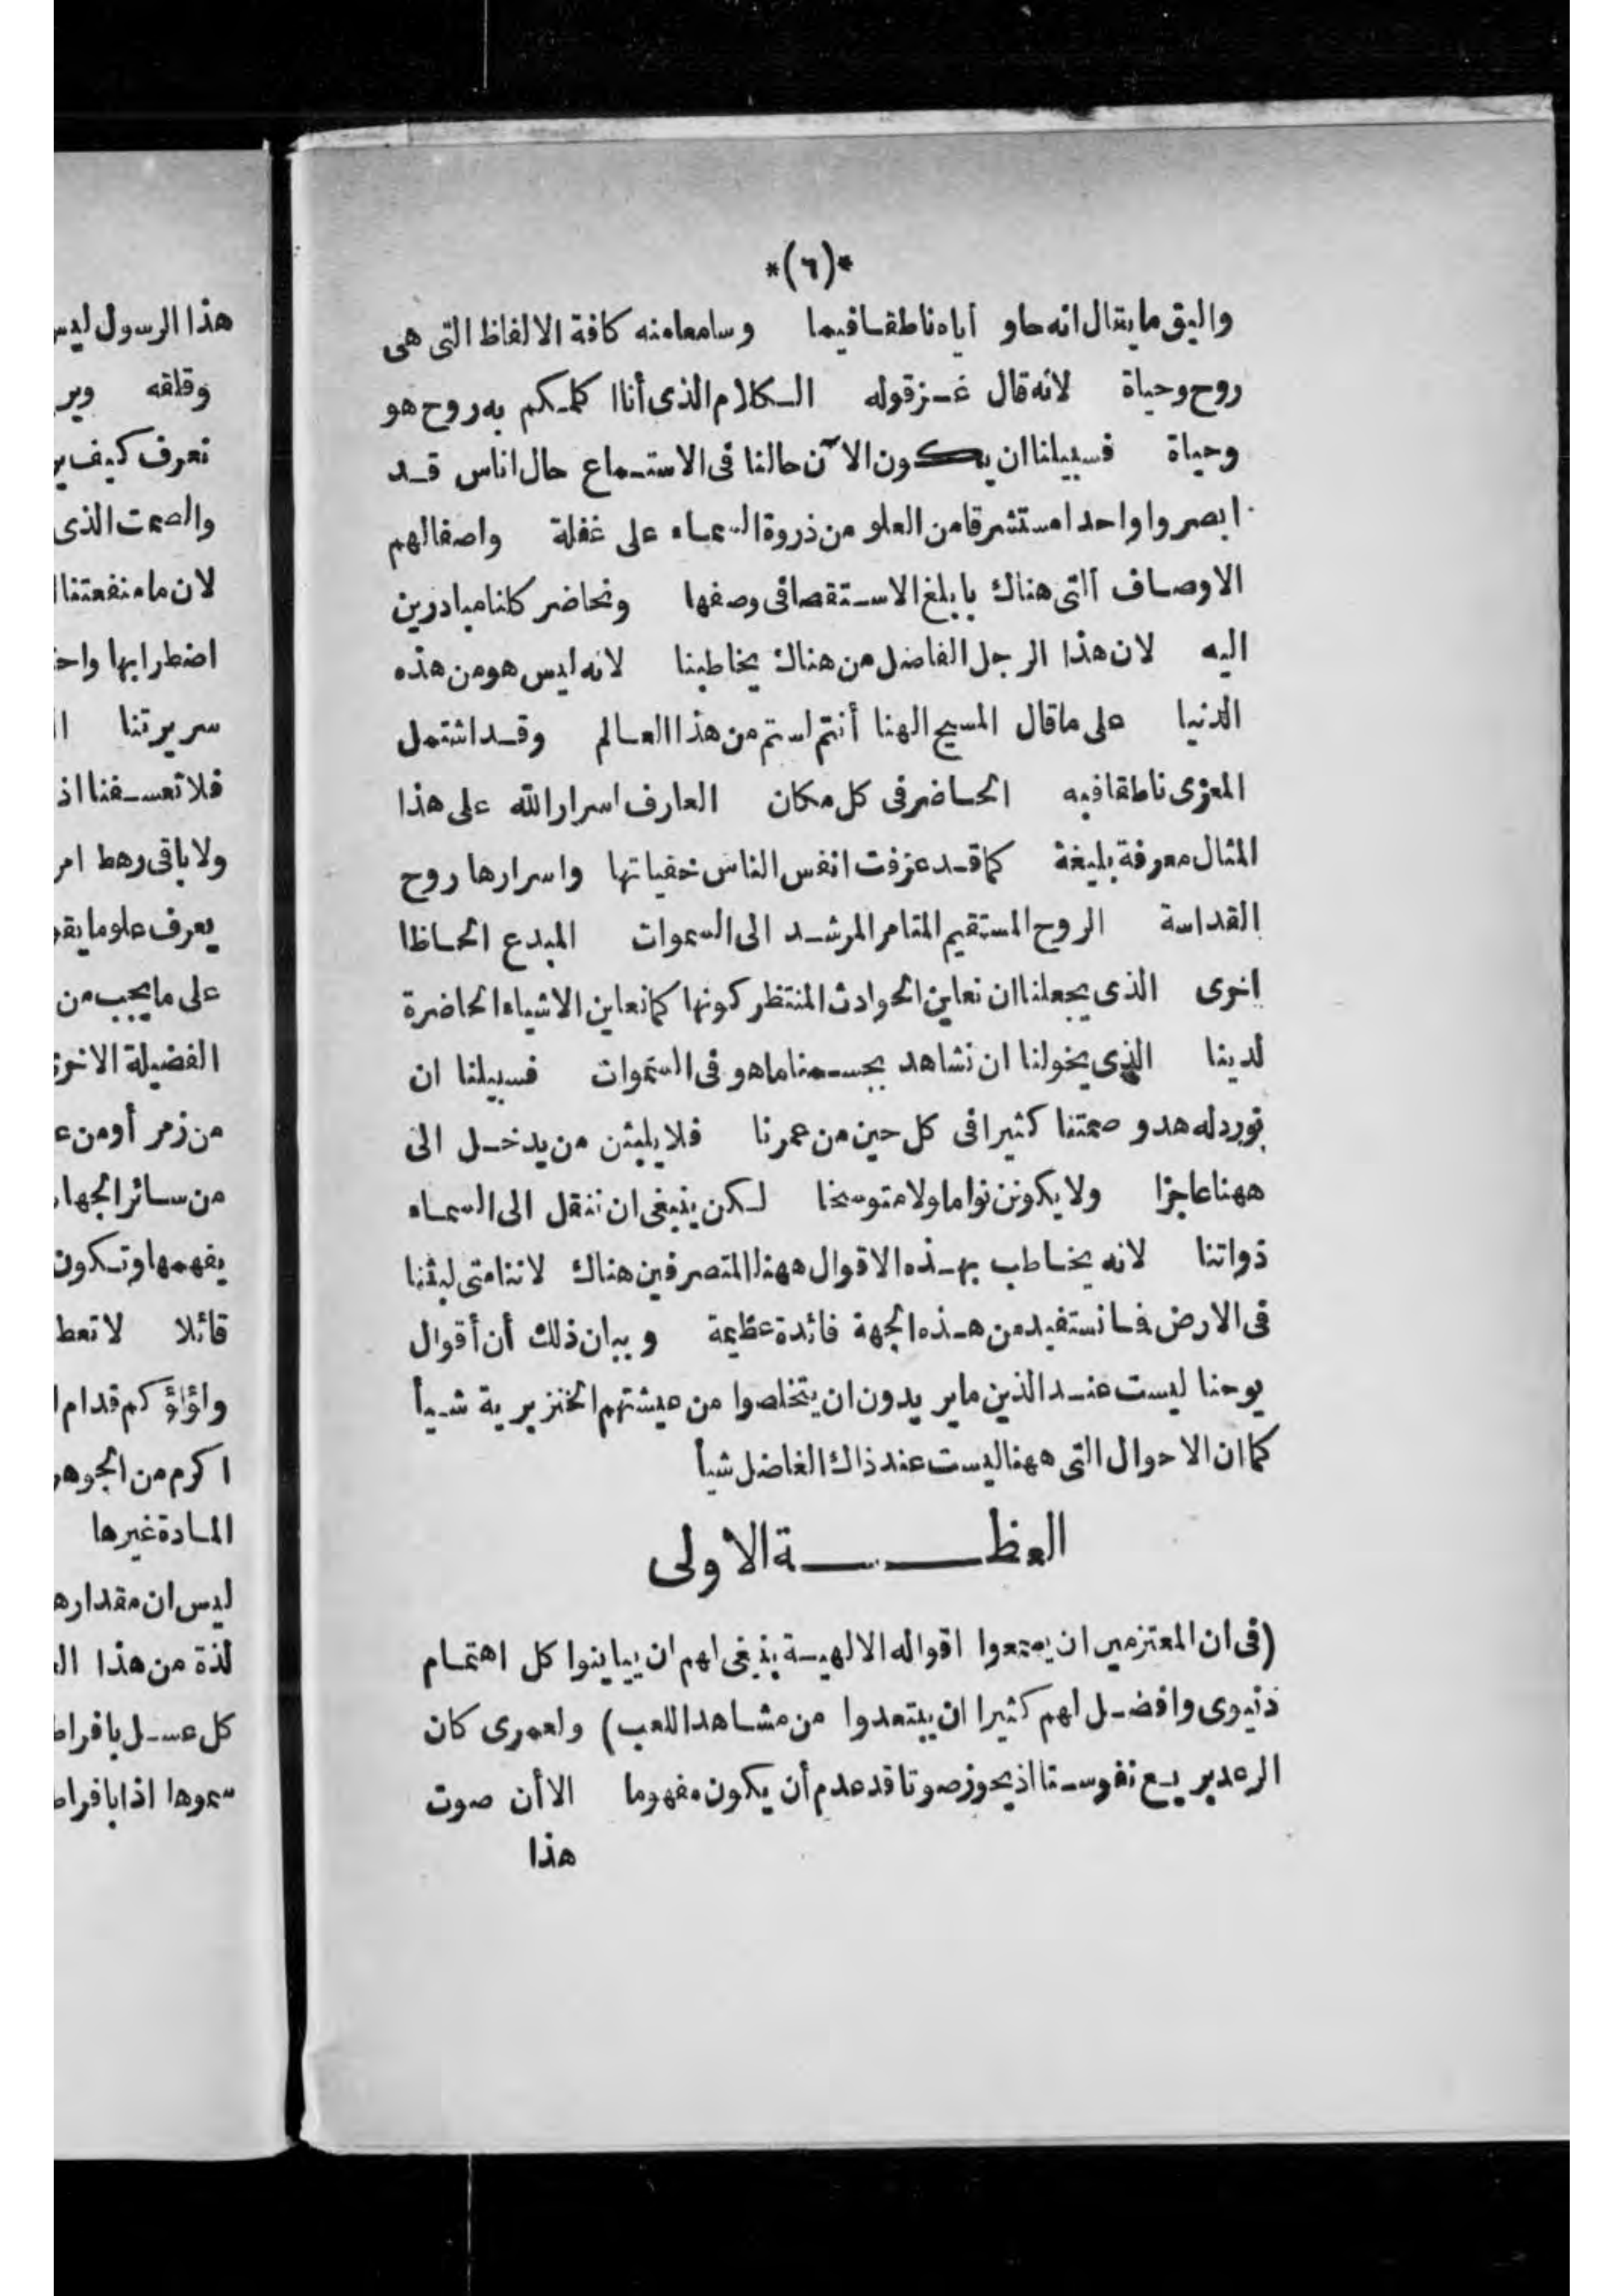 *(٦)*
واليق ما يقال انه حاو اياه ناطقا فيما وسامعا منه كافة الالفاظ التى هى
روح وحياة لانه قال عز قوله الكلام الذى أنا اكلمكم به روح هو
وحياة فسبيلنا ان يكون الآن حالنا فى الاستماع حال اناس قد
ابصروا واحدا مستشرقا من العلو من ذروة السماء على غفلة واصفا لهم
الاوصاف التى هناك بابلغ الاستقصا فى وصفها ونحاضر كلنا مبادرين
اليه لان هذا الرجل الفاضل من هناك يخاطبنا لانه ليس هو من هذه
الدنيا على ما قال المسيح الهنا أنتم لستم من هذا العالم وقد اشتمل
المعزى ناطقا فيه الحاضر فى كل مكان العارف اسرار الله على هذا
المثال معرفة بليغة كما قد عرفت انفس الناس خفياتها واسرارها روح
القداسة الروح المستقيم المتامر المرشد الى السموات المبدع الحاظا
اخرى الذى يجعلنا ان نعاين الحوادث المنتظر كونها كما نعاين الاشياء الحاضرة
لدينا الذى يخولنا ان نشاهد بجسمنا ما هو فى السموات فسبيلنا ان
نورد له هدو صمتنا كثيرا فى كل حين من عمرنا فلا يلبثن من يدخل الى
ههنا عاجزا ولا يكونن نواما ولا متوسخا لكن ينبغى ان ننقل الى السماء
ذواتنا لانه يخاطب بهذه الاقوال ههنا المتصرفين هناك لاننا متى لبثنا
فى الارض فما نستفيد من هذه الجهة فائدة عظيمة وبيان ذلك أن أقوال
يوحنا ليست عند الذين ما يريدون ان يتخلصوا من عيشتهم الخنزيرية شيأ
كما ان الاحوال التى ههنا ليست عند ذاك الفاضل شيأ
العظــــة الاولى
(فى ان المعتزمين ان يسمعوا اقواله الالهية ينبغى لهم ان يباينوا كل اهتمام
دنيوى وافضل لهم كثيرا ان يبتعدوا من مشاهد اللعب) ولعمرى كان
الرعد يريع نفوسنا اذ يحوز صوتا قد عدم أن يكون مفهوما الا أن صوت
هذا
هذا الرسول ليس
وقلقه وير
نعرف كيف
والصمت الذى
لان ما منفعتنا
اضطرابها
سريرتنا
فلا تعسفنا اذ
ولا باقى رهط
يعرف علو ما
على ما يجب من
الفضيلة
من زمر أو من
من سائر
يفهمها وتكون
قائلا لا
ولؤلؤكم قدام
اكرم من
المادة غيرها
ليس ان
لذة من هذا
كل عسل
سموها اذا